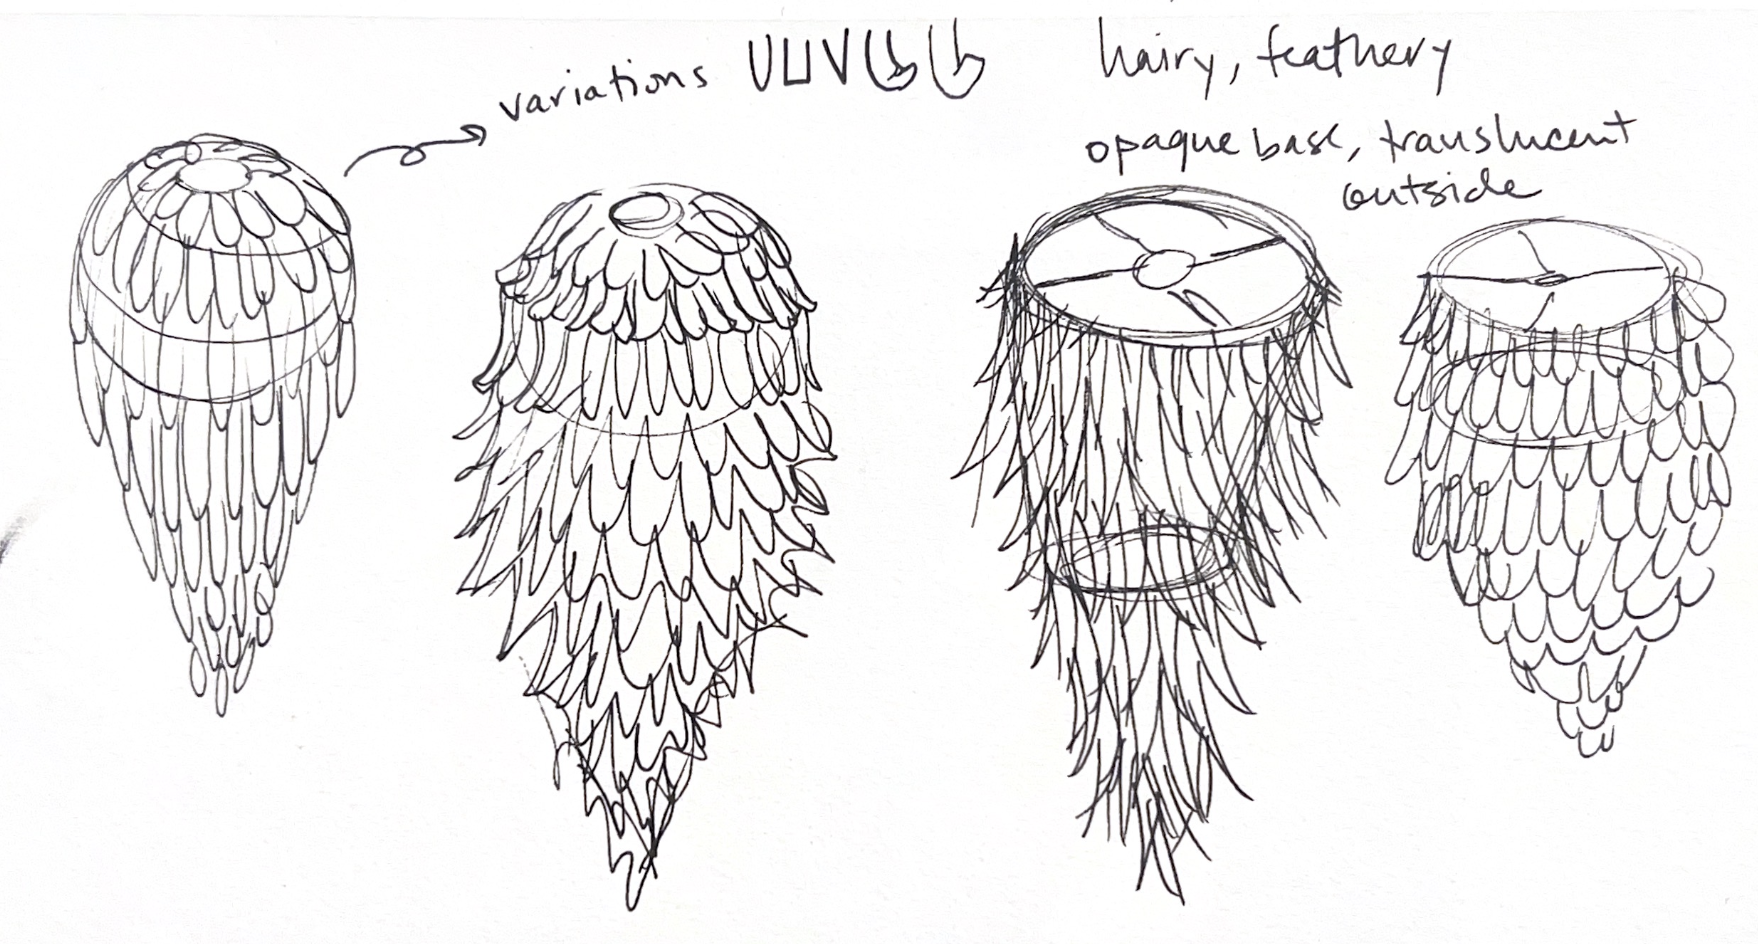 variations
hairy, feathery
opaque base, translucent
outside